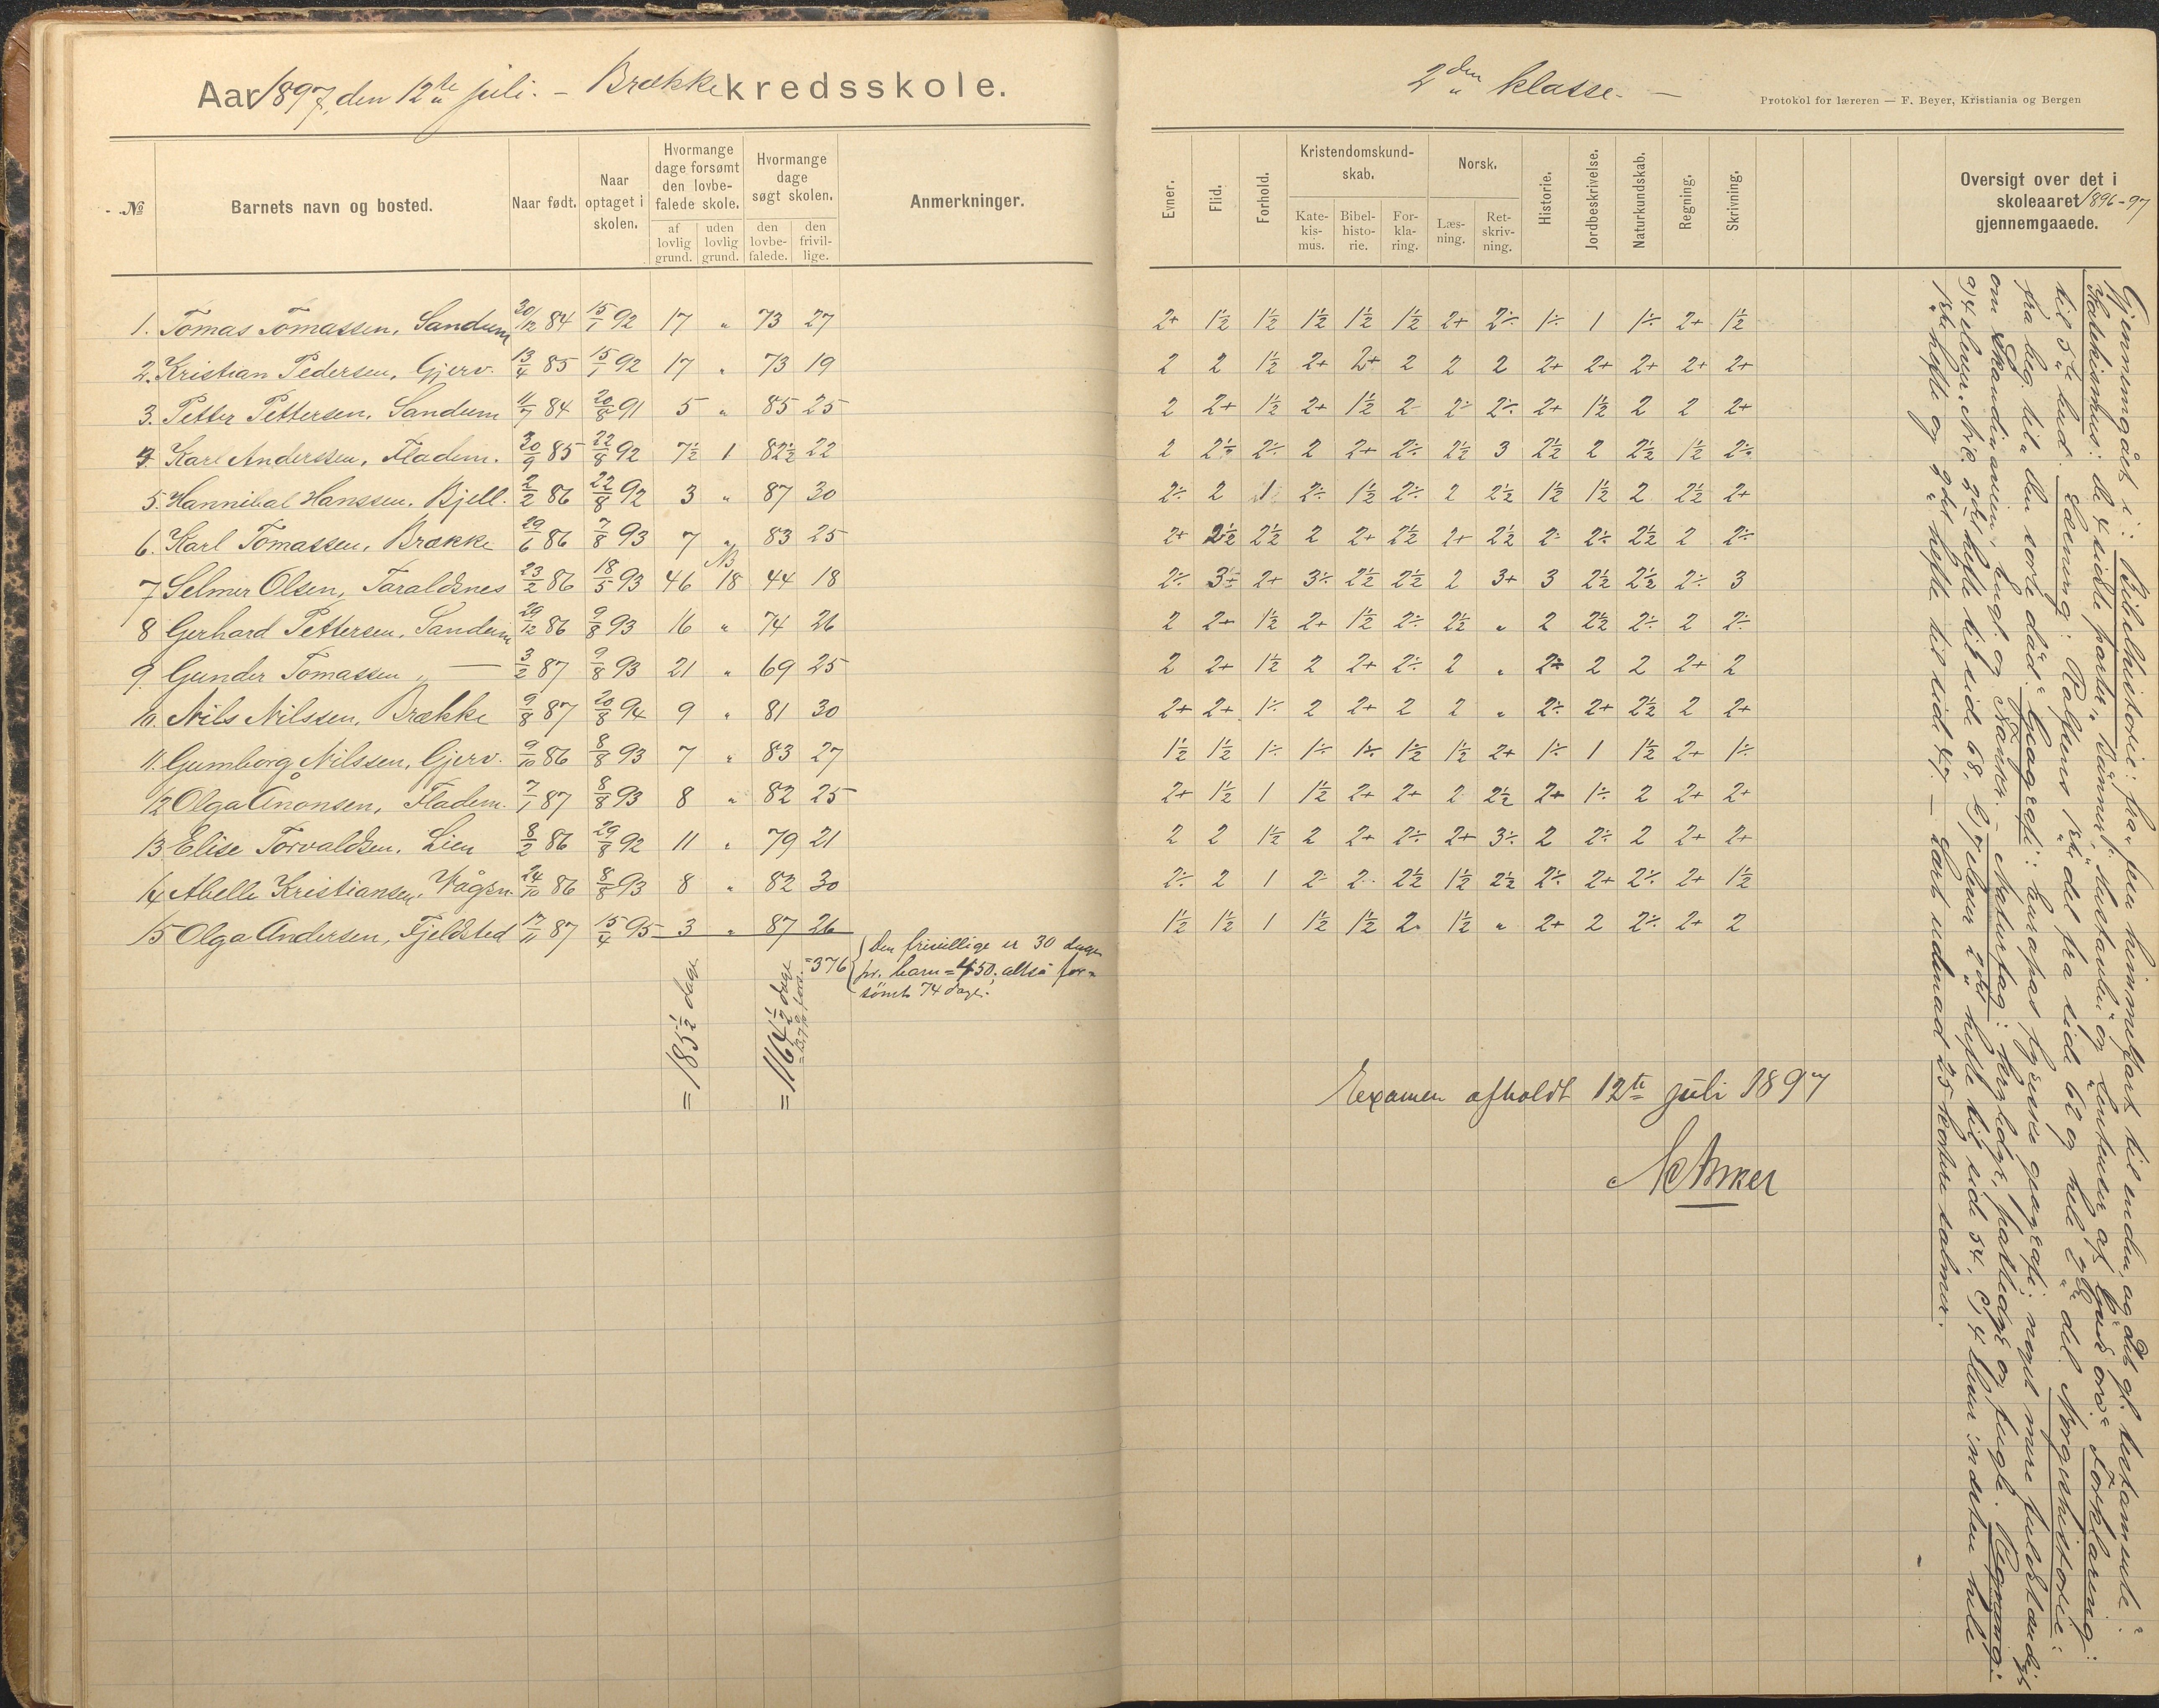 Aar 1897, den 12te juli. – Brække kredsskole.
№ Barnets navn og bosted. Naar født. Naar optaget i skolen. Hvormange dage forsømt den lovbefalede skole. af lovlig grund. uden lovlig grund. Hvormange dage søgt skolen. den lovbefalede. den frivillige. Anmerkninger.
1. Tomas Tomassen, Sandum 30/12 84 15/1 92 17 „ 73 27
2. Kristian Pedersen, Gjerv. 13/4 85 15/1 92 17 „ 73 19
3. Petter Pettersen, Sandum 11/7 84 20/8 91 5 „ 85 25
4. Karl Anderssen, Fladem. 30/9 85 22/8 92 7½ 1 82½ 22
5. Hannibal Hanssen, Bjell. 2/2 86 22/8 92 3 „ 87 30
6. Karl Tomassen, Brække 29/6 86 7/8 93 7 „ 83 25
NB
7 Selmer Olsen, Taraldsnes 23/2 86 18/5 93 46 18 44 18
8 Gerhard Pettersen, Sandum 29/12 86 9/8 93 16 „ 74 26
9. Gunder Tomassen „ — 3/2 87 9/8 93 21 „ 69 25
10. Nils Nilssen, Brække 9/8 87 20/8 94 9 „ 81 30
11. Gumborg Nilssen, Gjerv. 9/10 86 8/8 93 7 „ 83 27
12 Olga Ånonsen, Fladem. 7/1 87 8/8 93 8 „ 82 25
13 Elise Torvaldsen, Lien 8/2 86 29/8 92 11 „ 79 21
14 Abelle Kristiansen, Vågsn. 24/10 86 8/8 93 8 „ 82 30
15 Olga Andersen, Fjeldsted 17/11 87 15/4 95 3 „ 87 26
= 185½ dage
= 1164½ dage
=376
Den frivillige er 30 dage
pr. barn = 450, altså for-
sømt 74 dage.
2den klasse. –
Protokol for læreren — F. Beyer, Kristiania og Bergen
Evner. Flid. Forhold. Kristendomskundskab. Katekismus. Bibelhistorie. Forklaring. Norsk. Læsning. Retskrivning. Historie. Jordbeskrivelse. Naturkundskab. Regning. Skrivning. Oversigt over det i skoleaaret 1896-97 gjennemgaaede.
2+ 1½ 1½ 1½ 1½ 1½ 2+ 2÷ 1÷ 1 1÷ 2+ 1½
2 2 1½ 2+ 2+ 2 2 2 2+ 2+ 2+ 2+ 2+
2 2+ 1½ 2+ 1½ 2 2÷ 2÷ 2+ 1½ 2 2 2+
2 2½ 2÷ 2 2+ 2÷ 2½ 3 2½ 2 2½ 1½ 2÷
2÷ 2 1 2÷ 1½ 2÷ 2 2½ 1½ 1½ 2 2½ 2+
2+ 2½ 2½ 2 2+ 2½ 2+ 2½ 2÷ 2÷ 2½ 2 2÷
2÷ 3÷ 2+ 3÷ 2½ 2½ 2 3+ 3 2½ 2½ 2÷ 3
2 2+ 1½ 2+ 1½ 2÷ 2½ „ 2 2½ 2÷ 2 2÷
2 2+ 1½ 2 2+ 2÷ 2 „ 2÷ 2 2 2+ 2
2+ 2+ 1÷ 2 2+ 2 2 „ 2÷ 2+ 2½ 2 2+
1½ 1½ 1÷ 1÷ 1÷ 1½ 1½ 2+ 1÷ 1 1½ 2+ 1÷
2+ 1½ 1 1½ 2+ 2+ 2 2½ 2+ 1÷ 2 2+ 2+
2 2 1½ 2 2+ 2÷ 2+ 3÷ 2 2÷ 2 2+ 2+
2÷ 2 1 2÷ 2÷ 2½ 1½ 2½ 2÷ 2+ 2÷ 2+ 1½
1½ 1½ 1 1½ 1½ 2 1½ „ 2+ 2 2÷ 2+ 2
Examen afholdt 12te juli 1897
Gjennemgået i: Bibelhistorie: fra „ himmelfart til enden, og det gl. testamente.
Katekismus: de 4 sidste parter. Forklaring:
til 5te bud. Læsning: Rolfsens 1ste del fra side 62 og hele 2den del. Norgeshistorie:
fra beg. til „den sorte død“. Geografi: Europas fysiske geografi; noget mere fuldstændigt
om Skandinavien, Engl. og Frankr. – Naturfag: og fugle. Regning:
a) 4 elever Nic. 9de hefte til side 68, b) 7 elever 2det hefte til side 54, c) 4 elever indøvn hele
1ste hefte og 2det hefte til side 47. – Lært udenad 25 korte salmer.